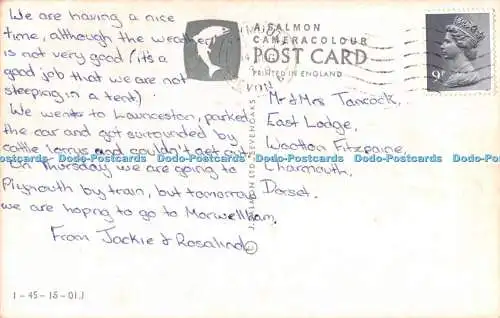 We are having a nice
time, although the weather
is not very good (it's a
good job that we are not
sleeping in a tent).
We went to Launceston, parked
the car and got surrounded by
cattle lorrys and couldn't get out.
On Thursday we are going to
Plymouth by train, but tomorrow
we are hoping to go to Morwellham.
From Jackie & Rosalind
1-45-15-01J
A SALMON
CAMERACOLOUR
POST CARD
PRINTED IN ENGLAND
J. SALMON LTD. SEVENOAKS
9P
Mr & Mrs Tancock,
East Lodge,
Wootton Fitzpaine,
Charmouth,
Dorset.
Dodo-Postcards Dodo-Postcards Dodo-Postcards Dodo-Postcards Dodo-Postcards